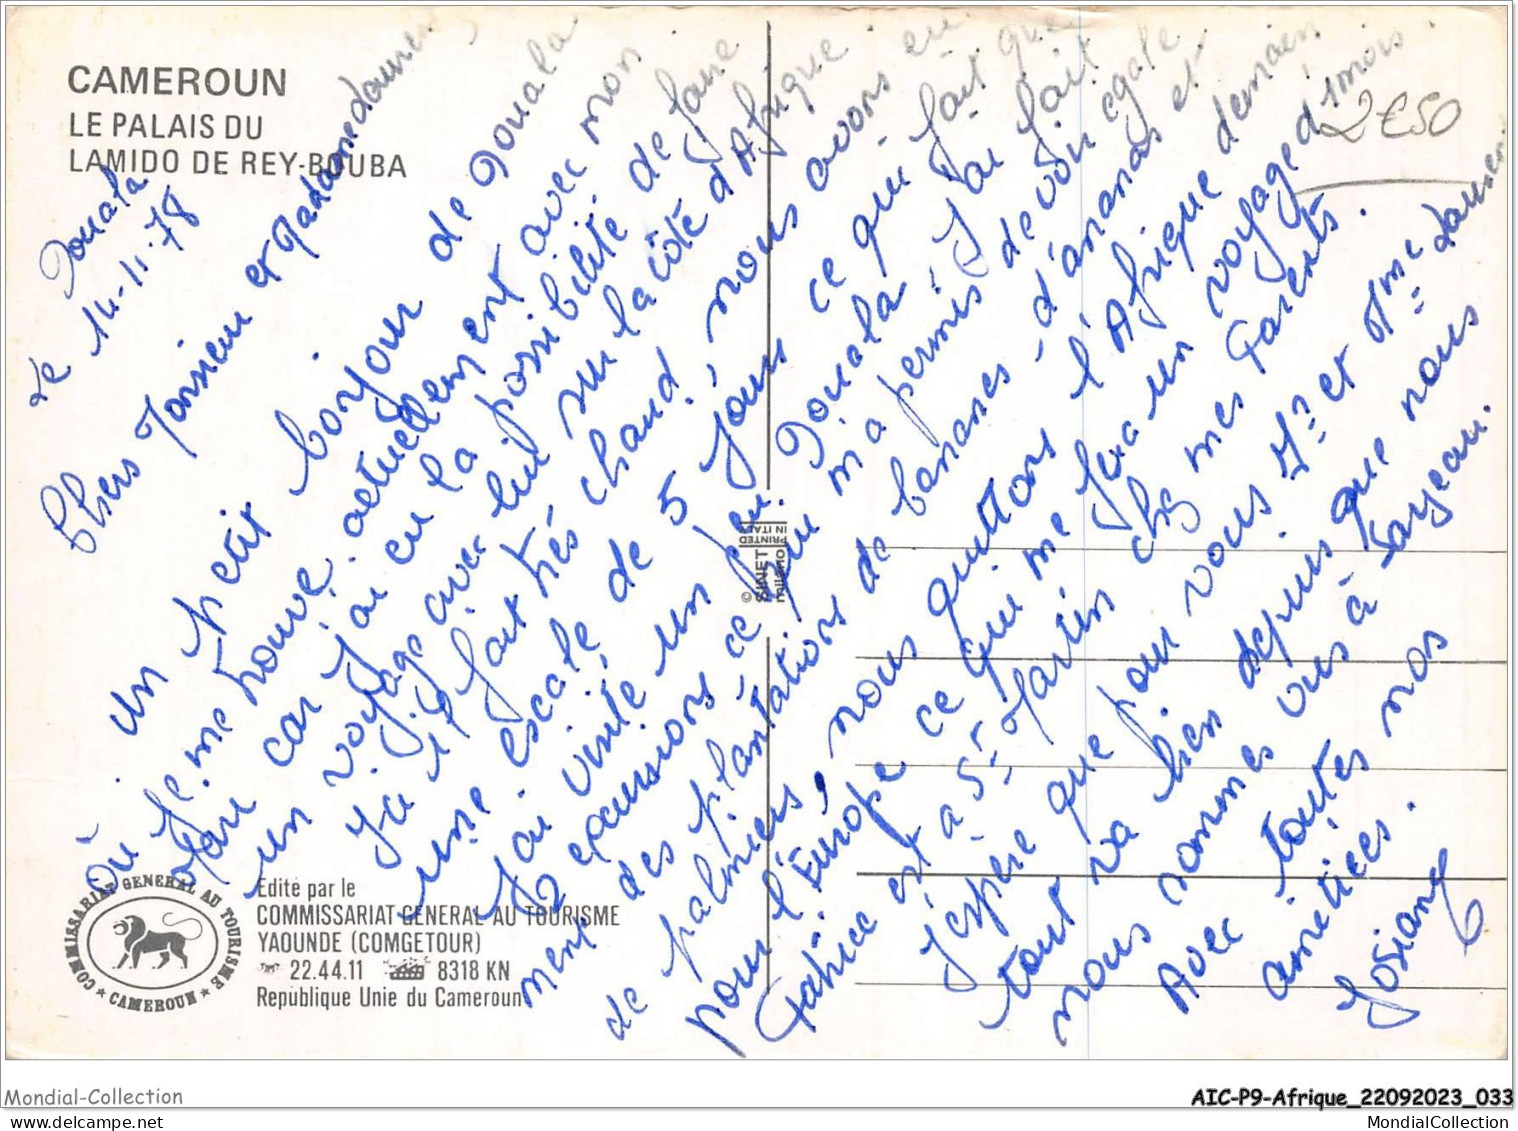 CAMEROUN
LE PALAIS DU
LAMIDO DE REY-BOUBA
2€50
Douala
Le 14-11-78
Chers Monsieur et Madame
Un petit bonjour de Douala
où je me trouve actuellement avec mon
Mari car j'ai eu la possibilité de faire
un voyage avec lui sur la côte d'Afrique.
Ici il fait très chaud, nous avons eu
une escale de 5 jours ce qui fait que
j'ai visité un peu Douala, j'ai fait
2 excursions ce qui m'a permis de voir égale
ment des plantations de bananes - d'ananas et
de palmiers, nous quittons l'Afrique demain
pour l'Europe ce qui me fera un voyage d'1 mois.
Patrice est à St Martin chez mes Parents.
J'espère que pour vous Mr et Mme
tout va bien depuis que nous
nous sommes vus à Sarzeau.
Avec toutes nos
amitiées.
Josiane
© SINET
milano
PRINTED
IN ITALY
COMMISSARIAT GENERAL AU TOURISME
★ CAMEROUN ★
Edité par le
COMMISSARIAT GENERAL AU TOURISME
YAOUNDE (COMGETOUR)
22.44.11 8318 KN
République Unie du Cameroun
Mondial-Collection
AIC-P9-Afrique_22092023_033
www.mondial-collection.com
MondialCollection